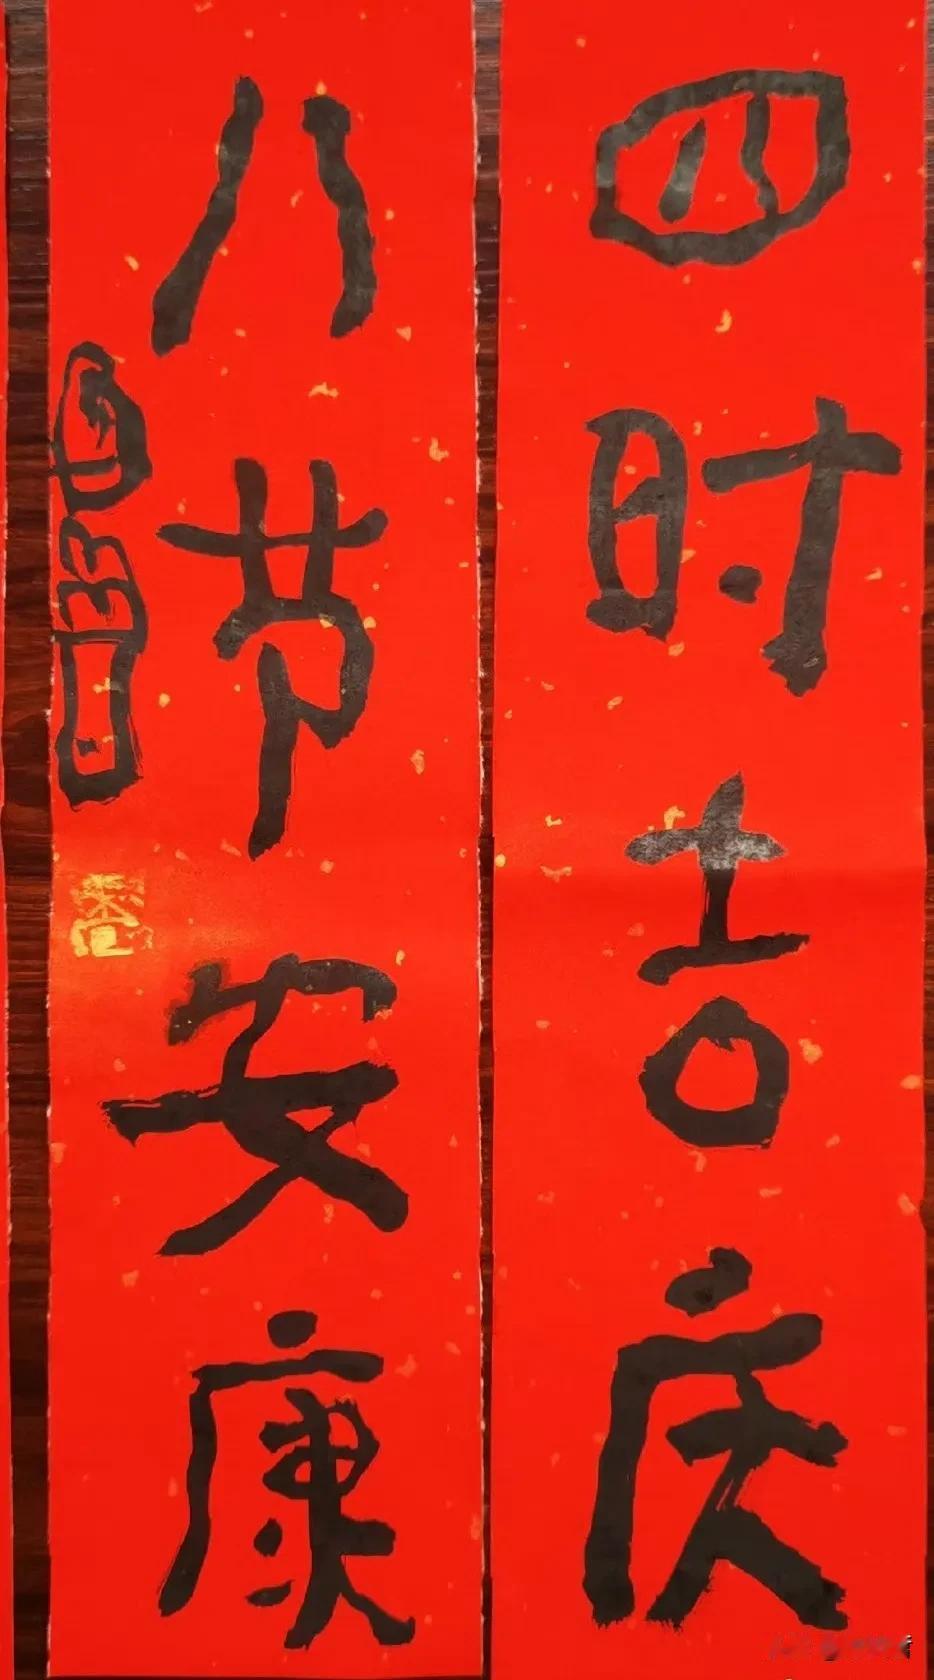 四时吉庆
八节安康